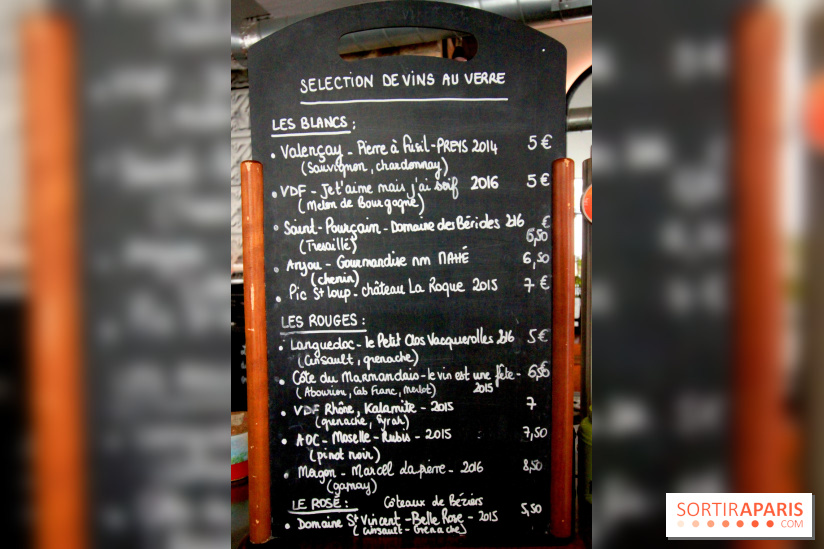 SELECTION DE VINS AU VERRE
LES BLANCS :
• Valençay - Pierre à Fusil - PREYS 2014 5 €
(Sauvignon, chardonnay)
• VDF - Je t'aime mais j'ai soif 2016 5 €
(Melon de Bourgogne)
• Saint-Pourçain - Domaine des Bérioles 2016 €
(Tressaillé) 6,50
• Anjou - Gourmandise nm MAHÉ 6,50
(chenin)
• Pic St Loup - château La Roque 2015 7 €
LES ROUGES :
• Languedoc - le Petit Clos Vacquerolles 2016 5 €
(Cinsault, grenache)
• Côte du Marmandais - le vin est une fête - 6,50
(Abouriou, Cab Franc, Merlot) 2015
• VDF Rhône, Kalamite - 2015 7
(grenache, Syrah)
• AOC - Moselle - Rubis - 2015 7,50
(pinot noir)
• Morgon - Marcel Lapierre - 2016 8,50
(gamay)
LE ROSÉ : Côteaux de Béziers
• Domaine St Vincent - Belle Rose - 2015 5,50
(Cinsault - Grenache)
SORTIRAPARIS
.COM